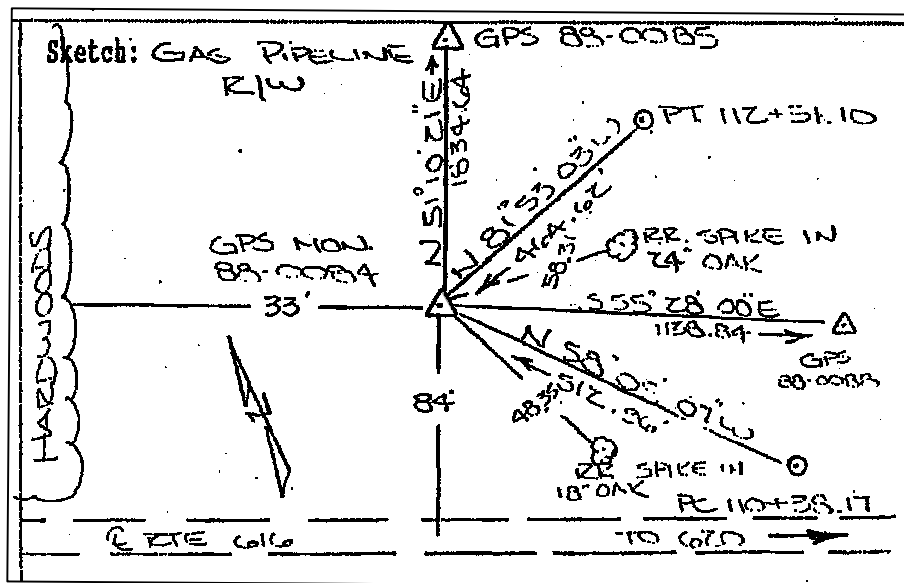 Sketch: GAS PIPELINE
R/W
GPS 88-0085
N 51° 10' 21" E
1634.64
PT 112+51.10
N 81° 53' 03" W
464.62'
58.3'
RR. SPIKE IN
24" OAK
GPS MON.
88-0084
33'
S 55° 28' 00" E
1128.84
GPS
88-0083
HARDWOODS
N
84'
N 58° 05' 07" W
512.36'
RR SPIKE IN
18" OAK
PC 110+38.17
℄ RTE 616
TO 670